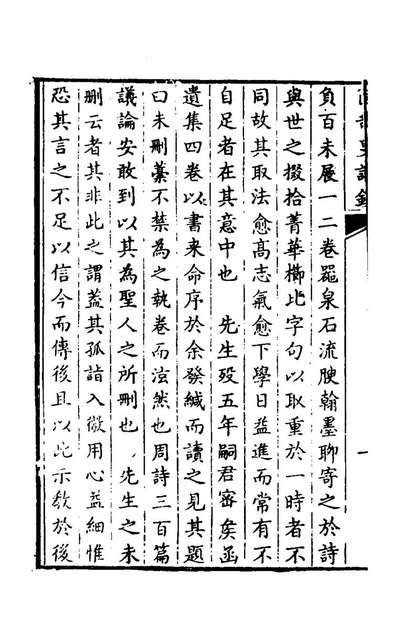 負百未展一二卷罷泉石流腴翰墨聊寄之於詩
與世之掇拾菁華櫛比字句以取重於一時者不
同故其取法愈高志氣愈下學日益進而常有不
自足者在其意中也　先生歿五年嗣君審矣函
遺集四卷以書来命序於余發緘而讀之見其題
曰未刪藁不禁為之執卷而泫然也周詩三百篇
議論安敢到以其為聖人之所刪也　先生之未
刪云者其非此之謂葢其孤詣入微用心益細惟
恐其言之不足以信今而傳後且以此示教於後